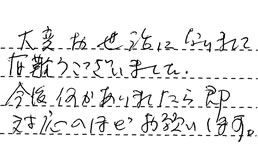 大変お世話になりまして
有難うございました。
今後何かありましたら即
対応のほどお願いします。